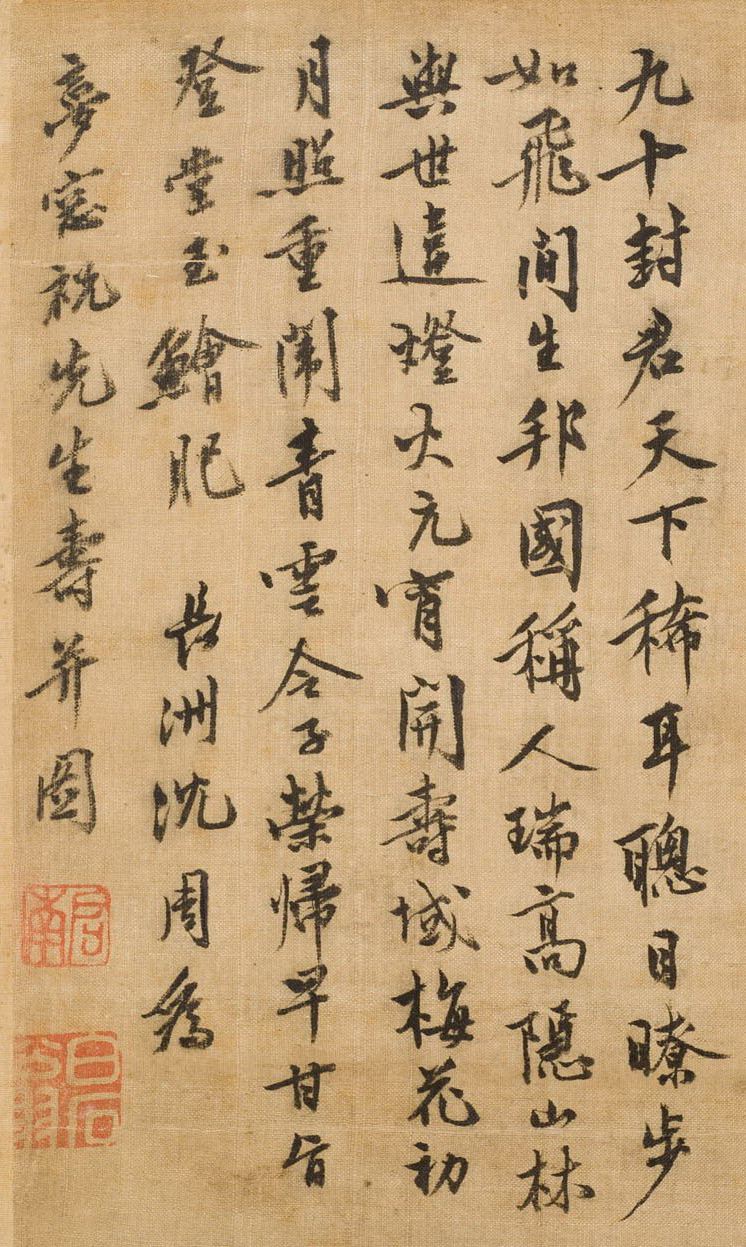 九十封君天下稀耳聰目瞭步
如飛間生邦國稱人瑞高隱山林
與世遠燈火元宵開壽域梅花初
月照重闈青雲令子榮歸早甘旨
登堂玉鱠肥　長洲沈周為
夢窓祝先生壽并圖
啟南
白石翁